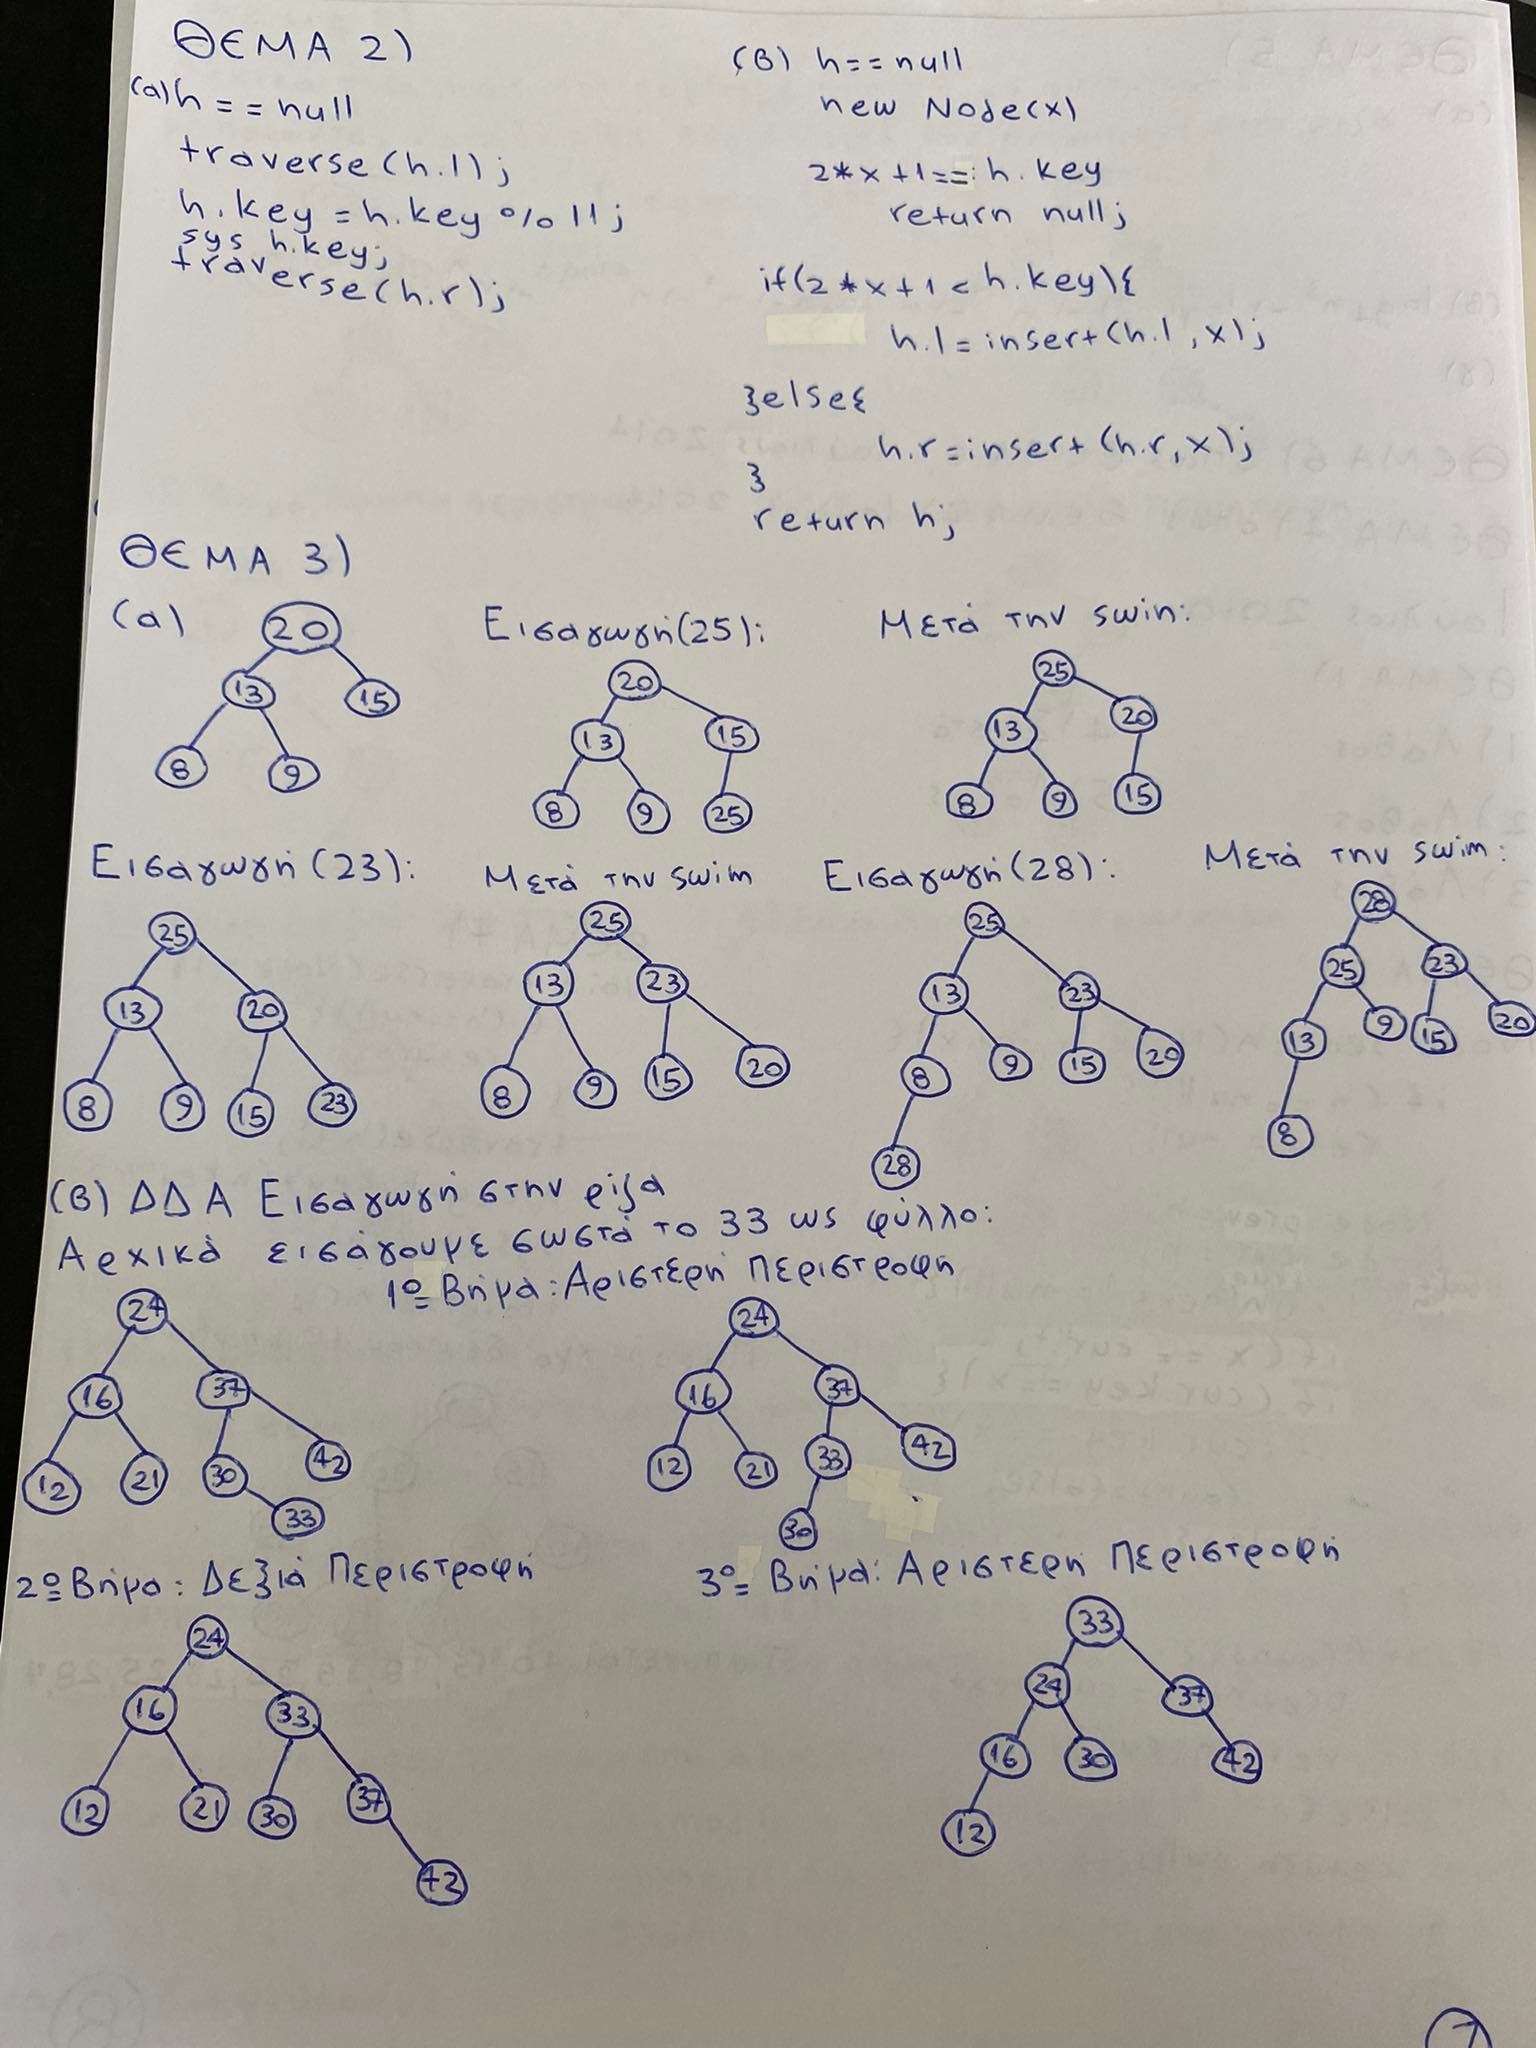 ΘΕΜΑ 2)
(α) h == null
traverse(h.l);
h.key = h.key % 11;
sys h.key;
traverse(h.r);
(β) h == null
new Node(x)
2*x+1 == h.key
return null;
if(2*x+1 < h.key){
h.l = insert(h.l, x);
}else{
h.r = insert(h.r, x);
}
return h;
ΘΕΜΑ 3)
(α)
20
13 15
8 9
Εισαγωγή(25):
20
13 15
8 9 25
Μετά την swim:
25
13 20
8 9 15
Εισαγωγή(23):
25
13 20
8 9 15 23
Μετά την swim
25
13 23
8 9 15 20
Εισαγωγή(28):
25
13 23
8 9 15 20
28
Μετά την swim:
28
25 23
13 9 15 20
8
(β) ΔΔΑ Εισαγωγή στην ρίζα
Αρχικά εισάγουμε σωστά το 33 ως φύλλο:
24
16 37
12 21 30 42
33
1º Βήμα: Αριστερή Περιστροφή
24
16 37
12 21 33 42
30
2º Βήμα: Δεξιά Περιστροφή
24
16 33
12 21 30 37
42
3º Βήμα: Αριστερή Περιστροφή
33
24 37
16 30 42
12
7